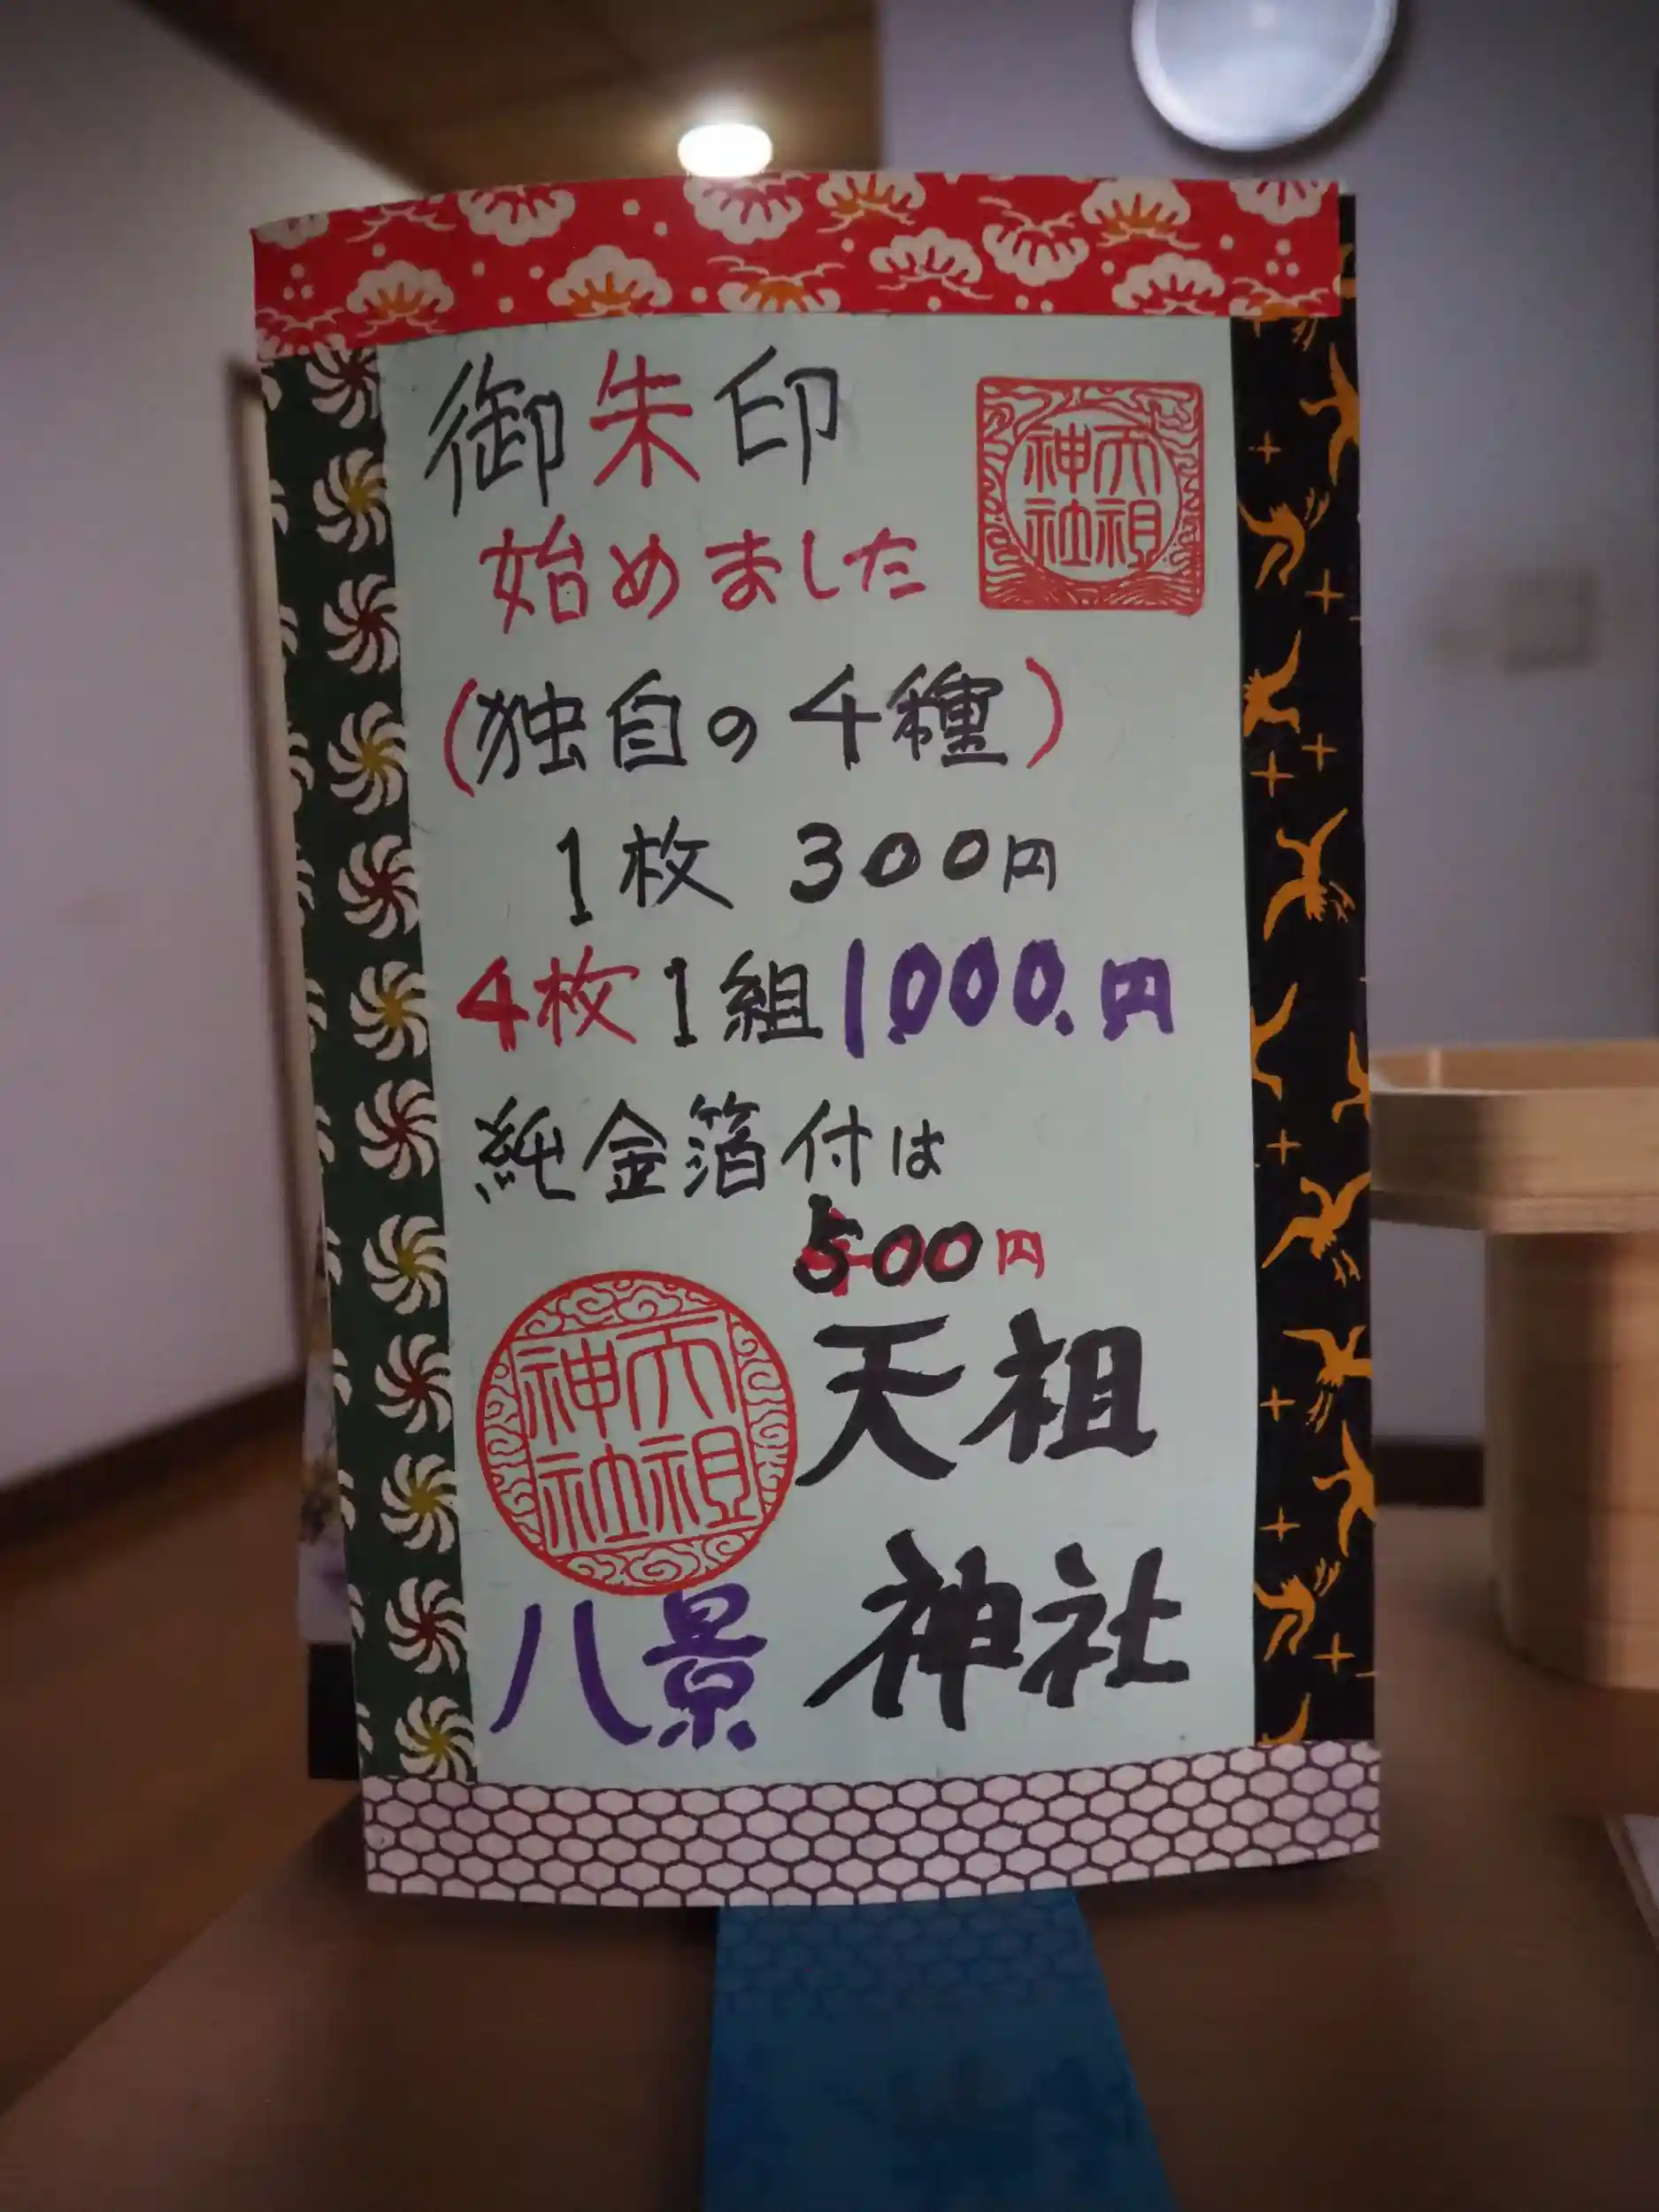 御朱印
天祖
神社
始めました
(独自の4種)
1枚 300円
4枚1組1000.円
純金箔付は
500円
天祖
神社
天祖
神社
八景